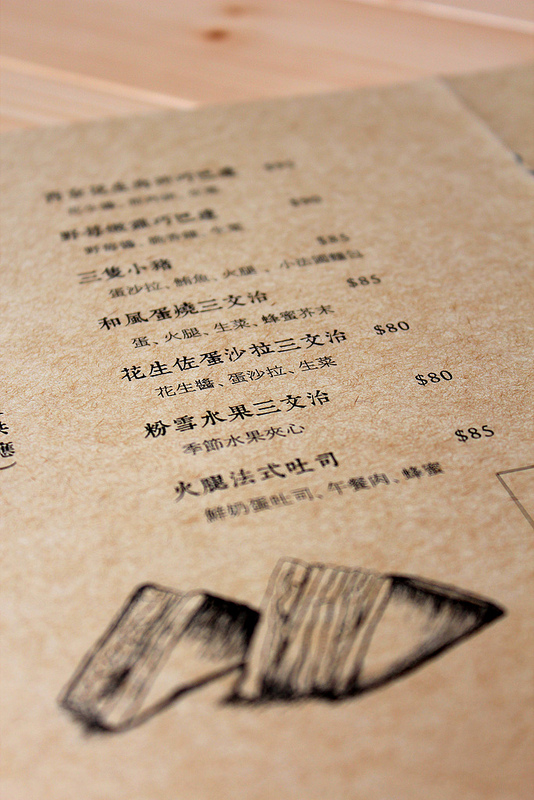 野莓燻雞巧巴達 $80
野莓醬、生菜
三隻小豬 $85
蛋沙拉、鮪魚、火腿、小法國麵包
和風蛋燒三文治 $85
蛋、火腿、生菜、蜂蜜芥末
花生佐蛋沙拉三文治 $80
花生醬、蛋沙拉、生菜
粉雪水果三文治 $80
季節水果夾心
火腿法式吐司 $85
鮮奶蛋吐司、午餐肉、蜂蜜